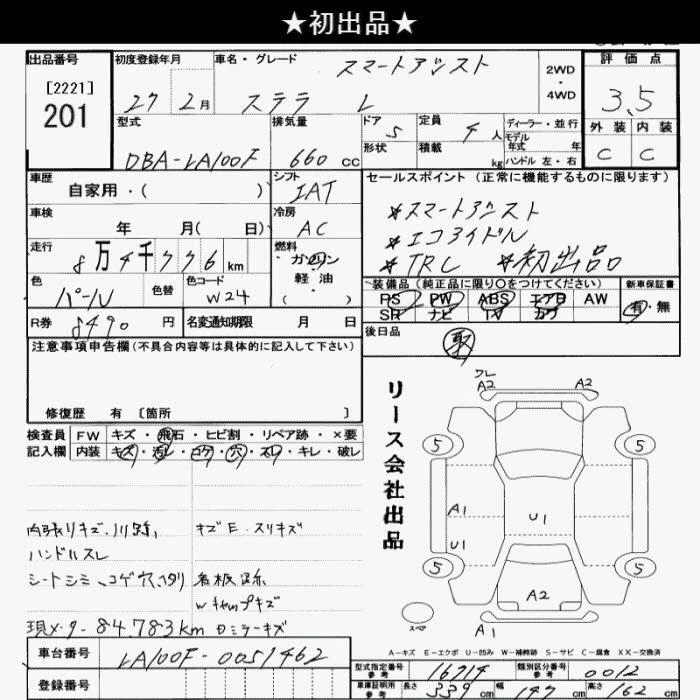 ★初出品★
出品番号 初度登録年月 車名・グレード スマートアシスト 2WD・4WD 評価点
[2221]
201 27 2月 ステラ L 3.5
型式 排気量 ドア 定員 ディーラー・並行 外装 内装
DBA-LA100F 660cc 5 4人 モデル年式 年 C C
形状 積載 kg ハンドル 左・右
車歴 シフト セールスポイント (正常に機能するものに限ります)
自家用・( ) IAT *スマートアシスト
車検 冷房 *エコアイドル
年 月( 日) AC *TRC *初出品
走行 8万4千776km 燃料 ガソリン 軽油 ( )
色 パール 色替 色コード W24
装備品 (純正品に限り○をつけてください) 新車保証書
PS PW ABS エアB AW 有・無
SR ナビ TV カワ
R券 8490円 名変通知期限 月 日
後日品 取
注意事項申告欄(不具合内容等は具体的に記入して下さい)
修復歴 有〔箇所 〕
リース会社出品
検査員 FW キズ・飛石・ヒビ割・リペア跡・×要
記入欄 内装 キズ・汚レ・コゲ・穴・スレ・キレ・破レ
内張りキズ、
キズE・スリキズ
ハンドルスレ
シートシミ、コゲ穴、
Wキャップキズ
現メーター84,783km Dミラーキズ
A2 A2
5 5
A1 U1
U1
5 5
A2
スペア A1
A-キズ E-エクボ U-凹み W-補修跡 S-サビ C-腐食 XX-交換済
車台番号 LA100F-0051462
登録番号
型式指定番号 参考 16914 類別区分番号 参考 0012
車庫証明用 参考 長さ 339cm 幅 147cm 高さ 162cm